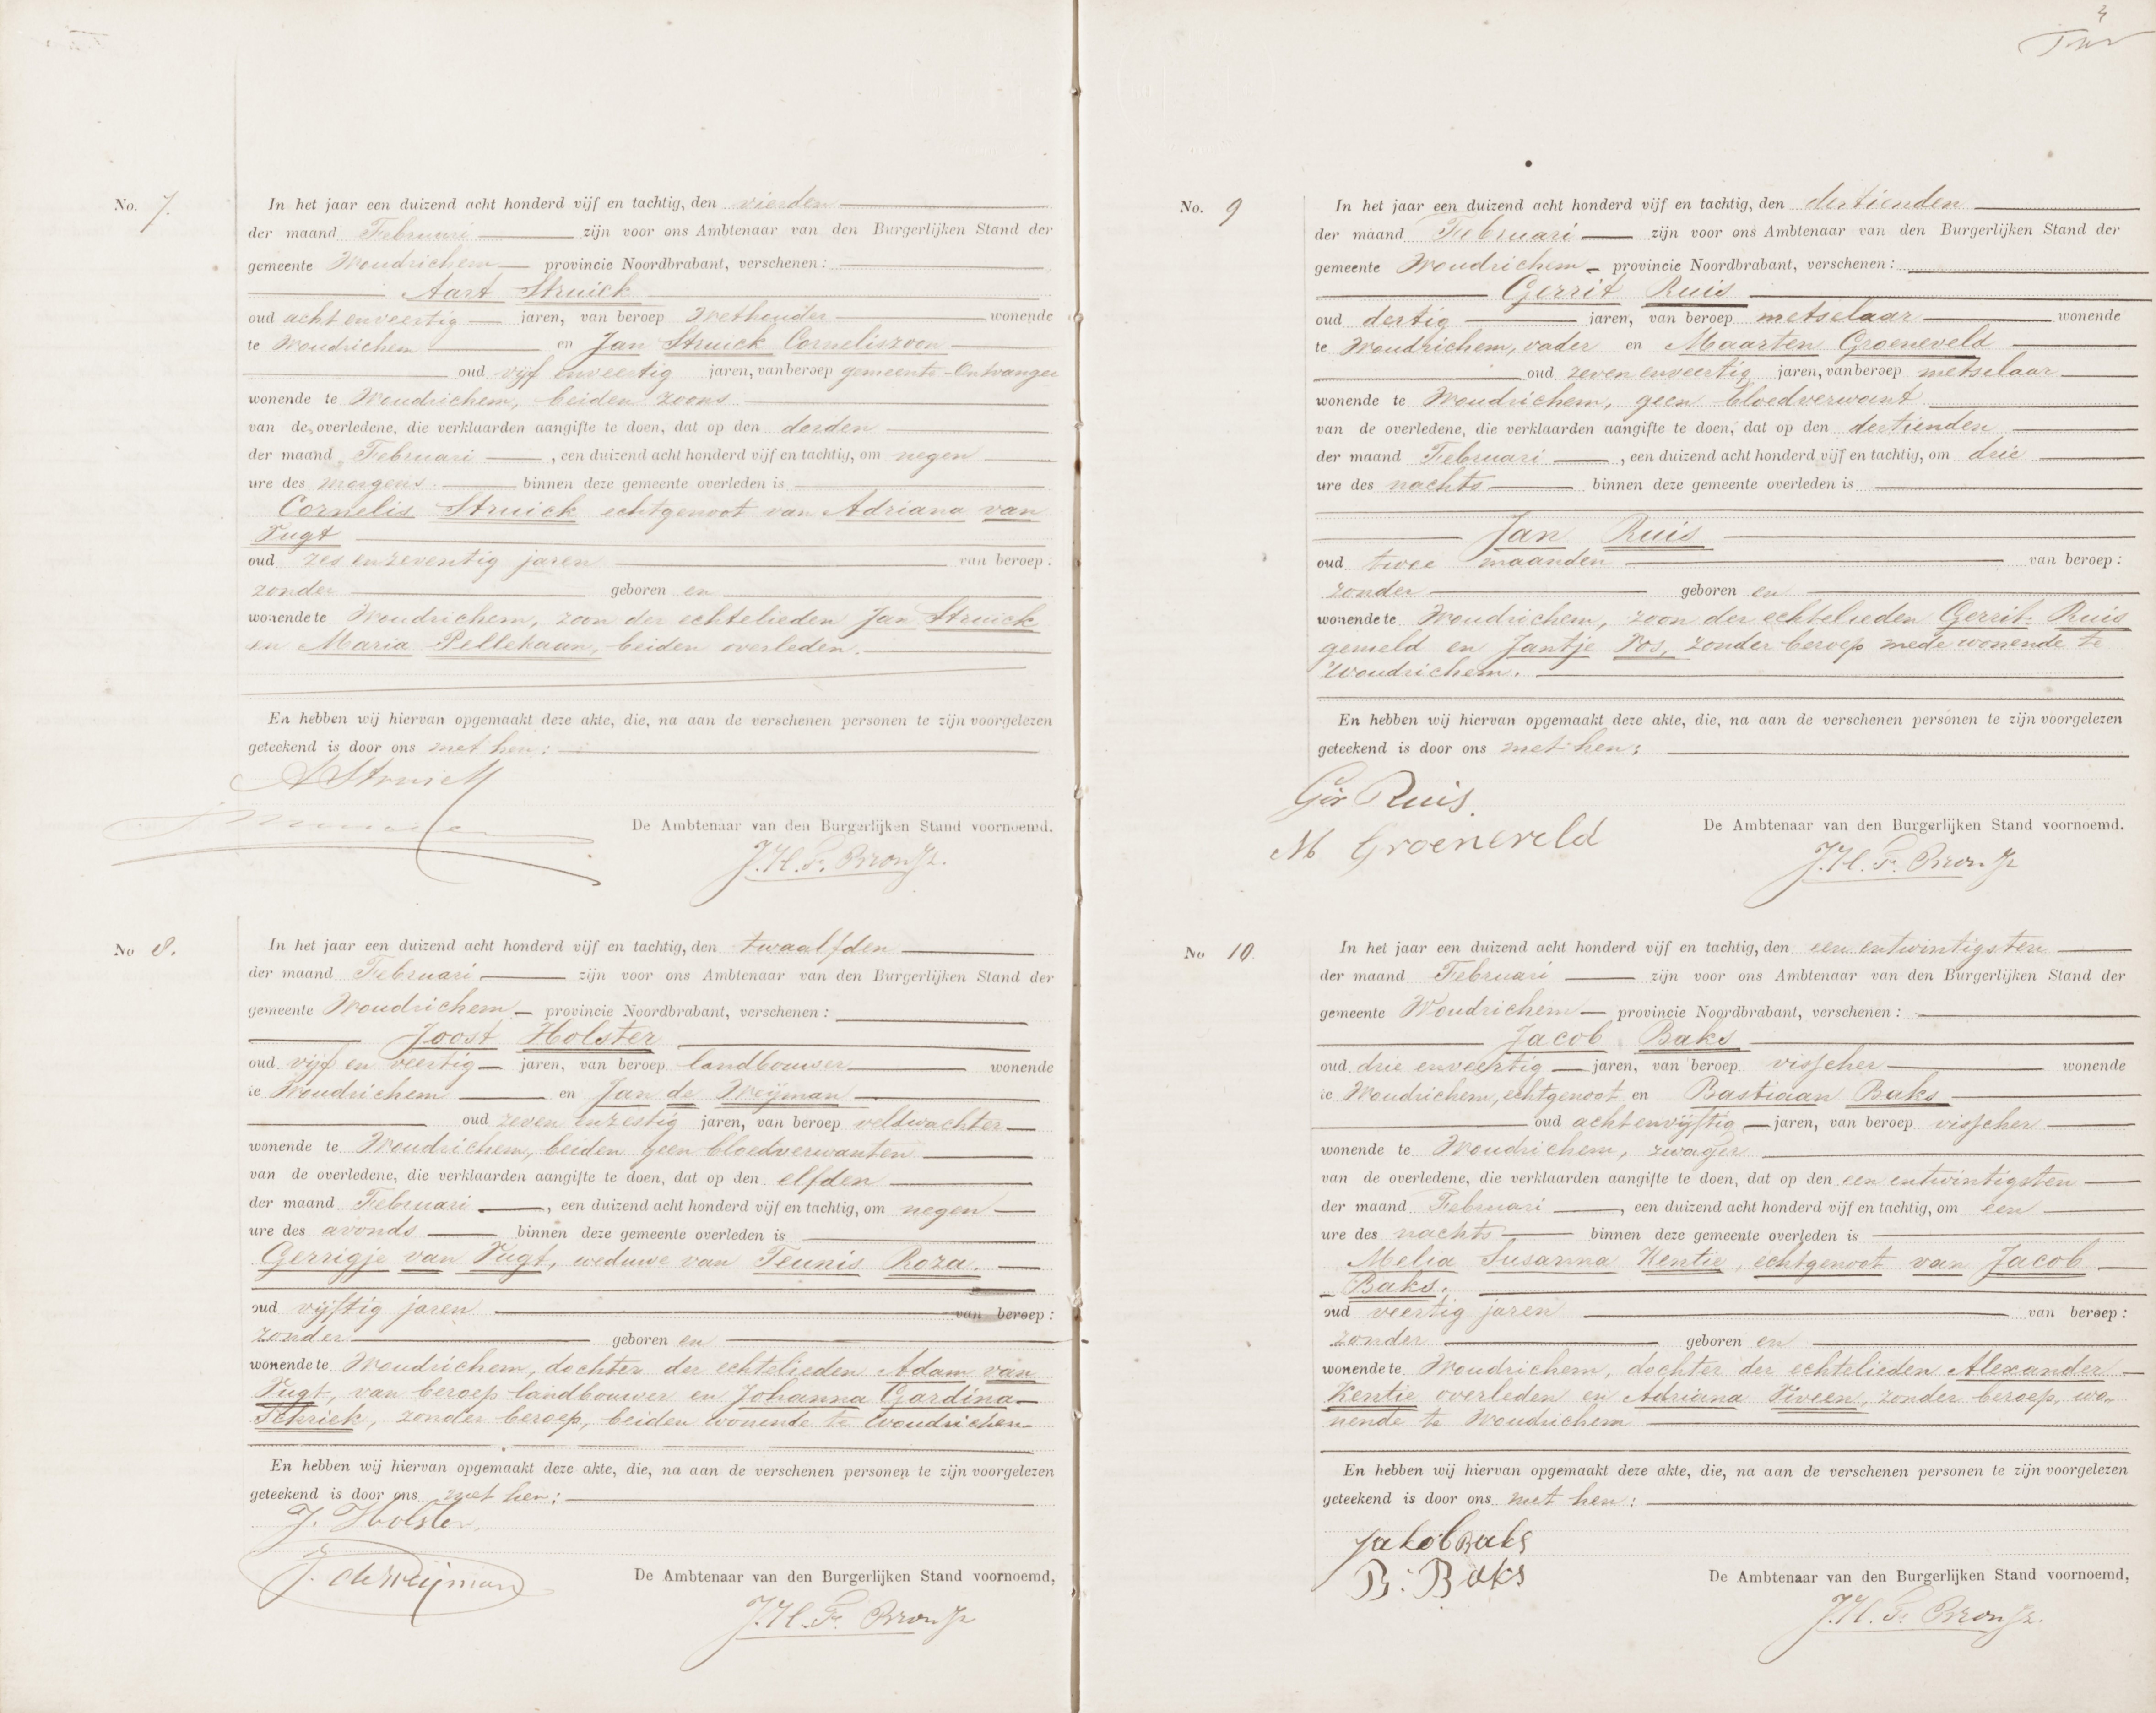 No. 7.
In het jaar een duizend acht honderd vijf en tachtig, den vierden
der maand Februari zijn voor ons Ambtenaar van den Burgerlijken Stand der
gemeente Woudrichem provincie Noordbrabant, verschenen:
Aart Struick
oud acht en veertig jaren, van beroep Wethouder wonende
te Woudrichem en Jan Struick Corneliszoon
oud vijf en veertig jaren, van beroep gemeente-Ontvanger
wonende te Woudrichem, beiden zoons
van de overledene, die verklaarden aangifte te doen, dat op den derden
der maand Februari, een duizend acht honderd vijf en tachtig, om negen
ure des morgens binnen deze gemeente overleden is
Cornelis Struick echtgenoot van Adriana van
Vugt
oud zes en zeventig jaren van beroep:
zonder geboren en
wonende te Woudrichem, zoon der echtelieden Jan Struick
en Maria Pellekaan, beiden overleden.
En hebben wij hiervan opgemaakt deze akte, die, na aan de verschenen personen te zijn voorgelezen
geteekend is door ons met hen:
A Struick
De Ambtenaar van den Burgerlijken Stand voornoemd.
J.H.F. Bron Jz.
No 8.
In het jaar een duizend acht honderd vijf en tachtig, den twaalfden
der maand Februari zijn voor ons Ambtenaar van den Burgerlijken Stand der
gemeente Woudrichem provincie Noordbrabant, verschenen:
Joost Holster
oud vijf en veertig jaren, van beroep landbouwer wonende
te Woudrichem en Jan de Weijman
oud zeven en zestig jaren, van beroep veldwachter
wonende te Woudrichem, beiden geen bloedverwanten
van de overledene, die verklaarden aangifte te doen, dat op den elfden
der maand Februari, een duizend acht honderd vijf en tachtig, om negen
ure des avonds binnen deze gemeente overleden is
Gerrigje van Vugt, weduwe van Teunis Roza.
oud vijftig jaren van beroep:
zonder geboren en
wonende te Woudrichem, dochter der echtelieden Adam van
Vugt, van beroep landbouwer en Johanna Gardina
Schriek, zonder beroep, beiden wonende te Woudrichem
En hebben wij hiervan opgemaakt deze akte, die, na aan de verschenen personen te zijn voorgelezen
geteekend is door ons met hen:
J. Holster.
J. de Weijman
De Ambtenaar van den Burgerlijken Stand voornoemd,
J.H.F. Bron Jz
4
No. 9
In het jaar een duizend acht honderd vijf en tachtig, den dertienden
der maand Februari zijn voor ons Ambtenaar van den Burgerlijken Stand der
gemeente Woudrichem provincie Noordbrabant, verschenen:
Gerrit Ruis
oud dertig jaren, van beroep metselaar wonende
te Woudrichem, vader en Maarten Groeneveld
oud zeven en veertig jaren, van beroep metselaar
wonende te Woudrichem, geen bloedverwant
van de overledene, die verklaarden aangifte te doen, dat op den dertienden
der maand Februari, een duizend acht honderd vijf en tachtig, om drie
ure des nachts binnen deze gemeente overleden is
Jan Ruis
oud twee maanden van beroep:
zonder geboren en
wonende te Woudrichem, zoon der echtelieden Gerrit Ruis
gemeld en Jantje Vos, zonder beroep mede wonende te
Woudrichem.
En hebben wij hiervan opgemaakt deze akte, die, na aan de verschenen personen te zijn voorgelezen
geteekend is door ons met hen:
Ger Ruis.
M Groeneveld
De Ambtenaar van den Burgerlijken Stand voornoemd.
J.H.F. Bron Jz
No 10
In het jaar een duizend acht honderd vijf en tachtig, den een en twintigsten
der maand Februari zijn voor ons Ambtenaar van den Burgerlijken Stand der
gemeente Woudrichem provincie Noordbrabant, verschenen:
Jacob Baks
oud drie en veertig jaren, van beroep visscher wonende
te Woudrichem, echtgenoot en Bastiaan Baks
oud acht en vijftig jaren, van beroep visscher
wonende te Woudrichem, zwager
van de overledene, die verklaarden aangifte te doen, dat op den een en twintigsten
der maand Februari, een duizend acht honderd vijf en tachtig, om een
ure des nachts binnen deze gemeente overleden is
Melia Susanna Kentie, echtgenoot van Jacob
Baks.
oud veertig jaren van beroep:
zonder geboren en
wonende te Woudrichem, dochter der echtelieden Alexander
Kentie overleden en Adriana Viveen, zonder beroep, wo-
nende te Woudrichem
En hebben wij hiervan opgemaakt deze akte, die, na aan de verschenen personen te zijn voorgelezen
geteekend is door ons met hen:
Jakob Baks
B. Baks
De Ambtenaar van den Burgerlijken Stand voornoemd,
J.H.F. Bron Jz.